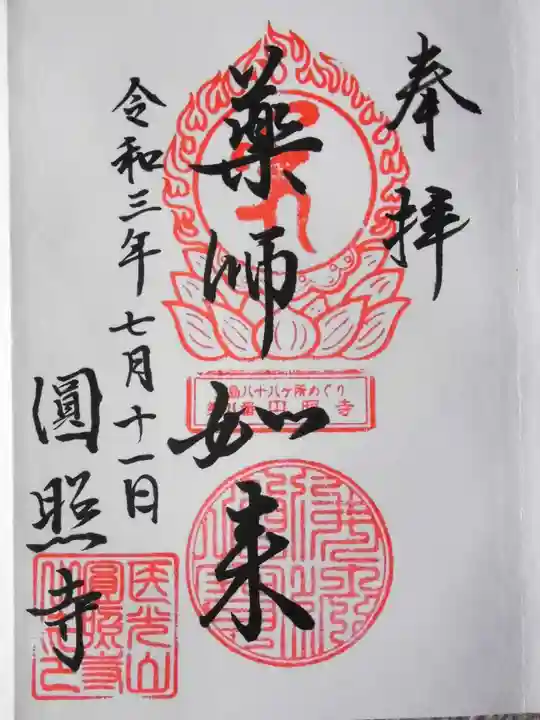 奉拝
薬師如来
島八十八ヶ所めぐり
番 円照寺
令和三年七月十一日
圓照寺
医光山
圓照寺